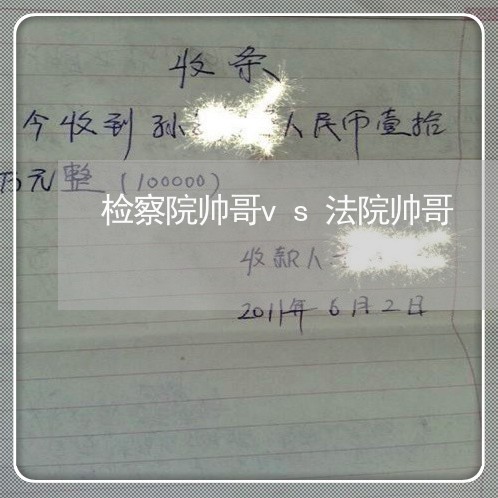 收条
今收到孙 人民币壹拾
万元整（100000）
检察院帅哥vs法院帅哥
收款人
2011年6月2日